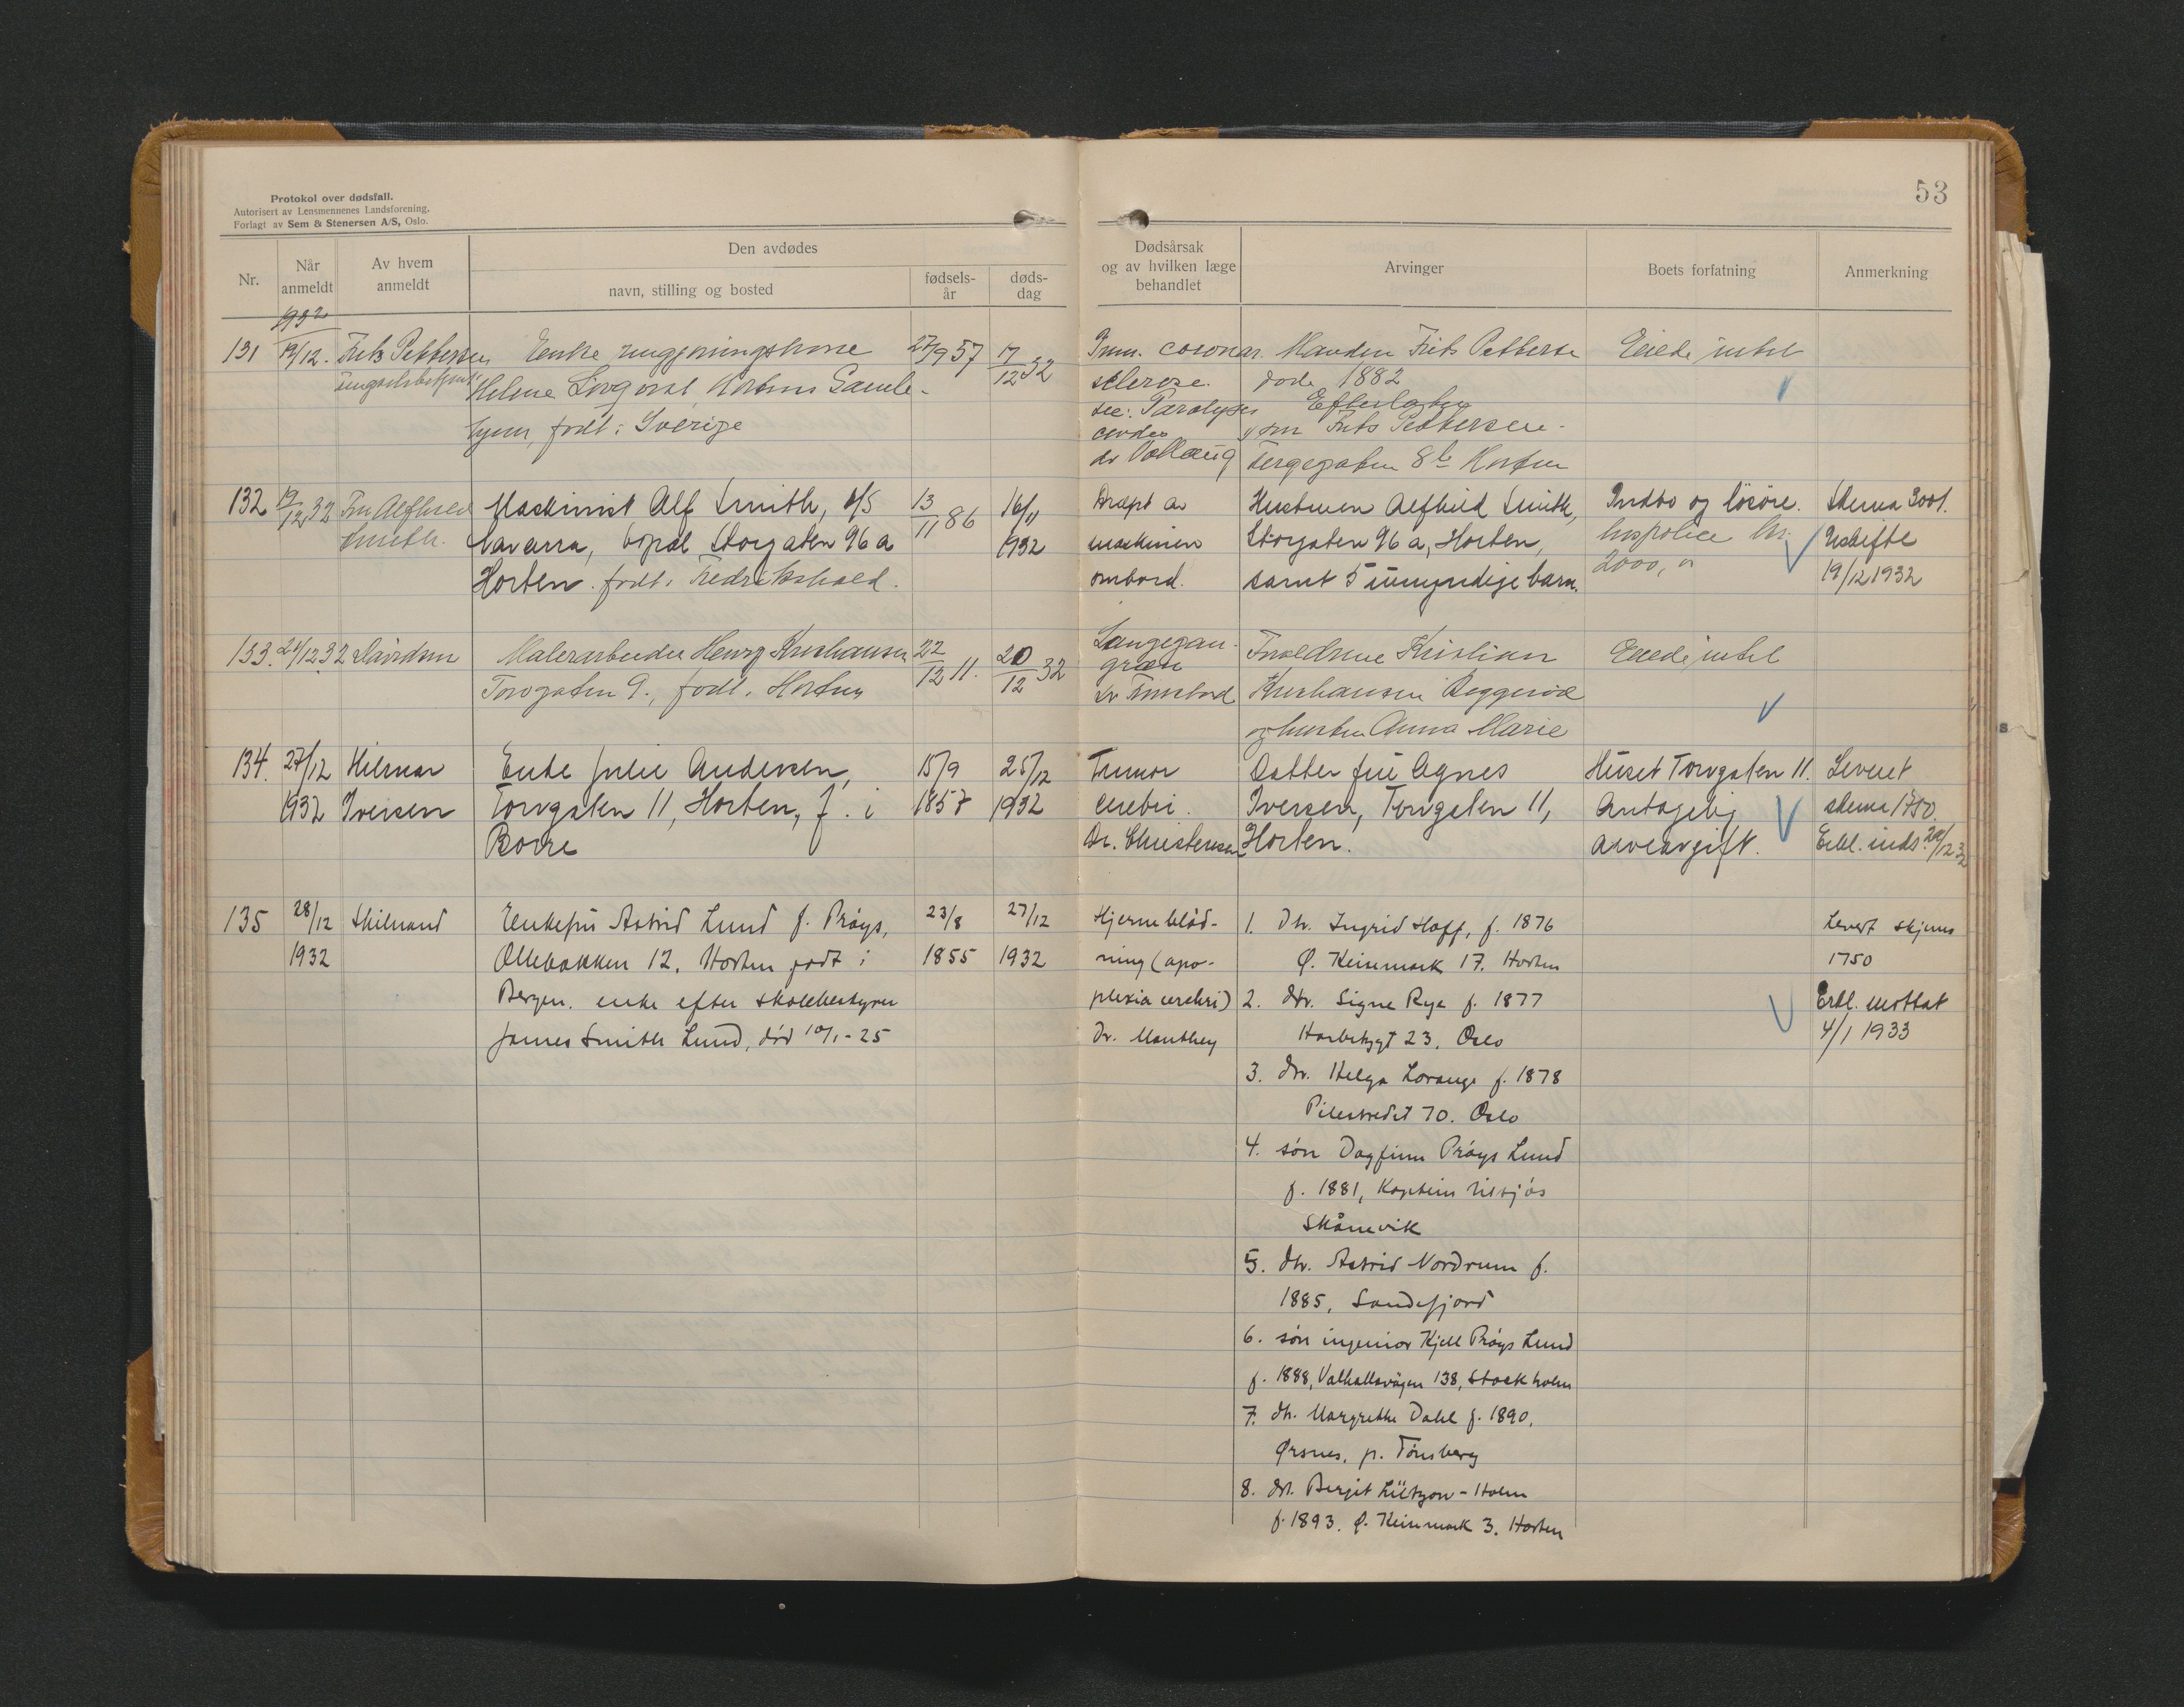 Protokol over dødsfall.
Autorisert av Lensmennenes Landsforening.
Forlagt av Sem & Stenersen A/S, Oslo.
53
Nr.
Når anmeldt
Av hvem anmeldt
Den avdødes
navn, stilling og bosted
fødsels-år
døds-dag
Dødsårsak og av hvilken læge behandlet
Arvinger
Boets forfatning
Anmerkning
1932
131 19/12. Frits Pettersen Enke rengjøringskone 27/9 57 17/12 32
Helene Hortens Gamle-
hjem, født i Sverige
coronar.
sclerose.
sec. Paralyses
cordis
Manden Frits Petterse
døde 1882
Efterlater
søn Frits Pettersen.
8b Horten
Eiede intet
132 19/12 32 Fru Alfhild Smith.
Maskinist Alf Smith, M/S
Navarra, bopæl Storgaten 96 a
Horten. født i Fredrikshald.
13/11 86
16/11 1932
Dræpt av
maskinen
ombord.
Hustruen Alfhild Smith,
Storgaten 96 a, Horten,
samt 5 umyndige barn.
Indbo og lösöre.
kr.
2000,
Skema 3001.
Uskifte
19/12 1932
133. 21/12 32 Davidsen
Malerarbeider Henry Kristiansen
Torvgaten 9., født i Horten
22/12 11.
20/12 32
Lungegan-
græn
Foreldrene Kristian
Kristiansen
og hustru Anna Marie
Eiede intet
134. 27/12 1932 Hilmar Iversen
Enke Julie Andersen,
Torvgaten 11, Horten, f. i
Borre
15/9 1857
25/12 1932
Tumor
cerebri.
Dr. Christensen
Datter fru Agnes
Iversen, Torvgaten 11,
Horten.
Huset Torvgaten 11.
Antagelig
arveavgift.
Leveret
skema 1750.
Erkl. inds. 29/12 32
135 28/12 1932 Skilnand
Enkefru Astrid Lund f. Prøys,
Ollebakken 12, Horten født i
Bergen. enke efter skolebestyrer
James Smith Lund, död 10/1-25
23/8 1855
27/12 1932
Hjerneblöd-
ning (apo-
plexia cerebri)
Dr. Manthey
1. Dtr. Ingrid Hoff, f. 1876
Ø. Keisemark 17. Horten
2. dtr. Signe Rye f. 1877
Harbitzgt 23, Oslo
3. dtr. Helga Lorange f. 1878
Pilestredet 70. Oslo
4. søn Dagfinn Prøys Lund
f. 1881, Kaptein
Skånevik
5. dtr. Astrid Nordrum f.
1885, Sandefjord
6. søn ingeniør Kjell Prøys Lund
f. 1888, Valhallavägen 138, Stockholm
7. dtr. Margrethe Dahl f. 1890,
Ørsnes, p. Tönsberg
8. dtr. Bergit Lützow-Holm
f. 1893. Ø. Keisemark 3. Horten
Levert skjema
1750
Erkl. mottat
4/1 1933